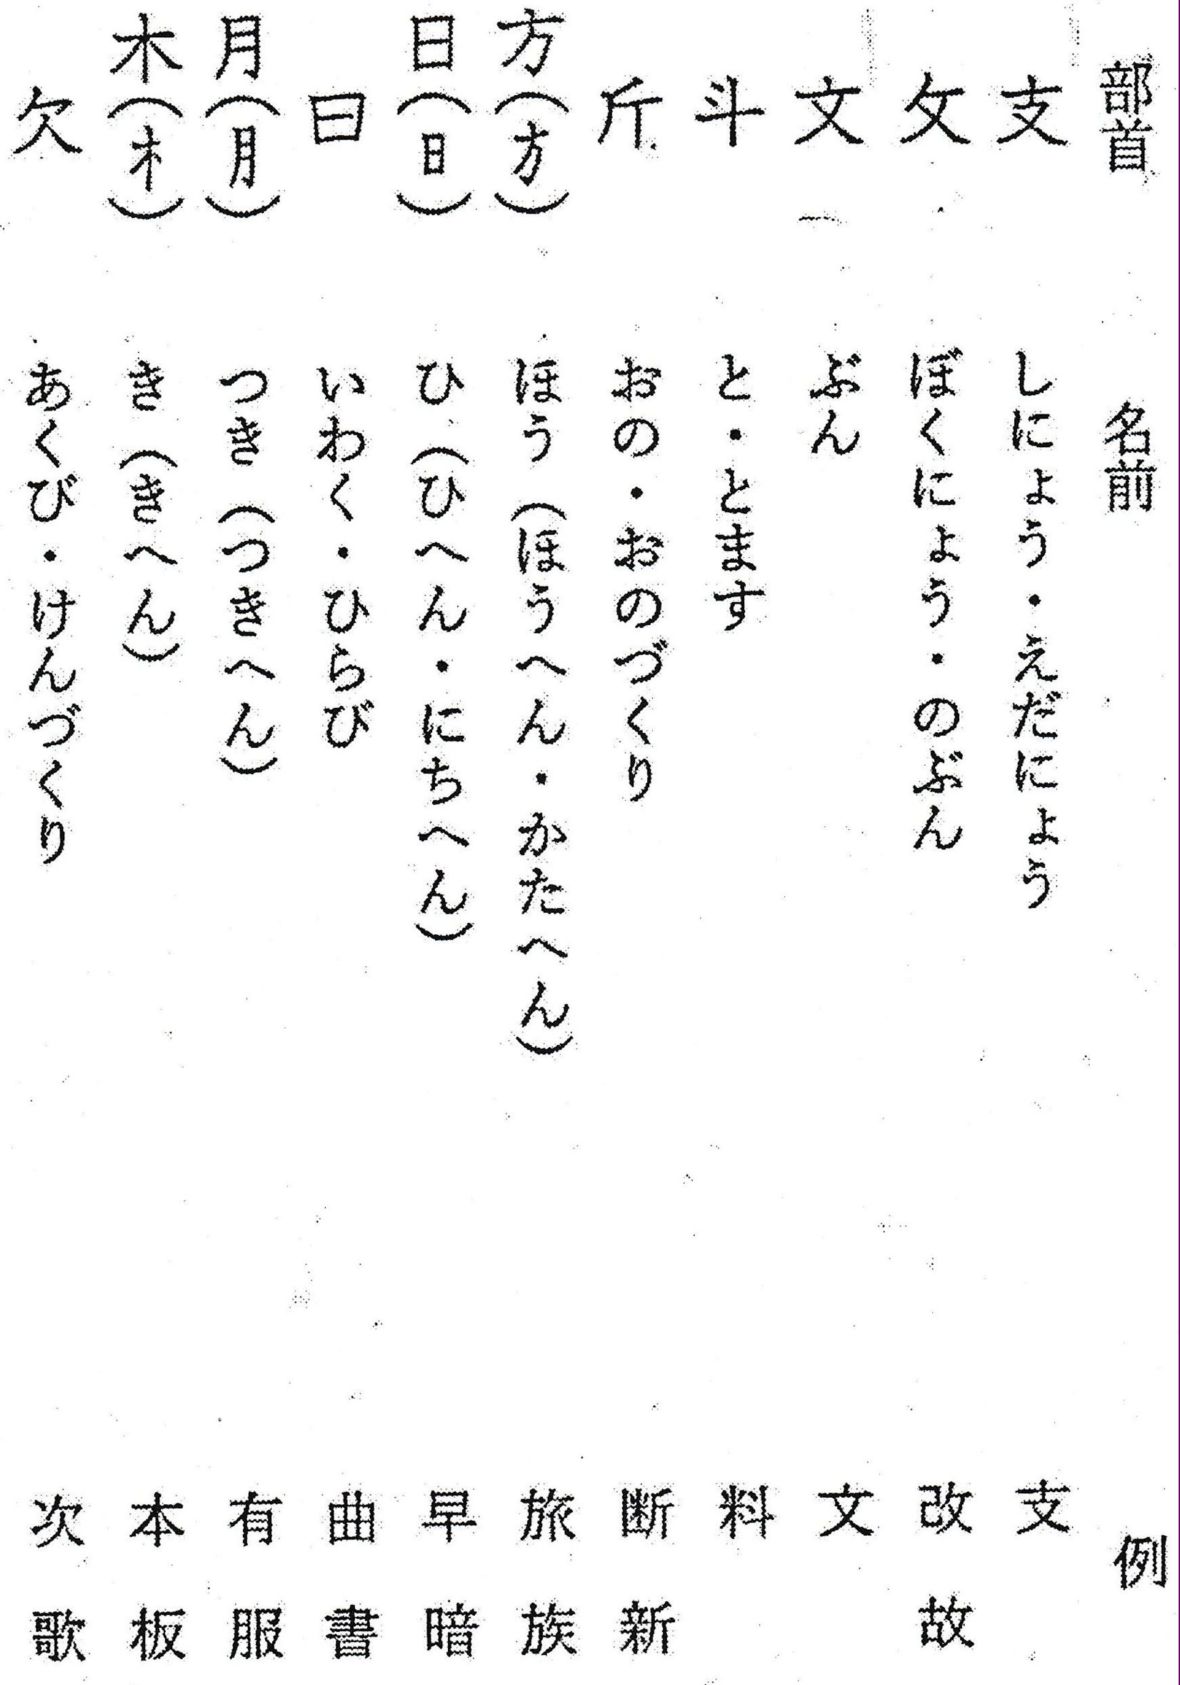 部首 名前 例
支 しにょう・えだにょう 支
攵 ぼくにょう・のぶん 改 故
文 ぶん 文
斗 と・とます 料
斤 おの・おのづくり 断 新
方(方) ほう(ほうへん・かたへん) 旅 族
日(日) ひ(ひへん・にちへん) 早 暗
曰 いわく・ひらび 曲 書
月(月) つき(つきへん) 有 服
木(木) き(きへん) 本 板
欠 あくび・けんづくり 次 歌